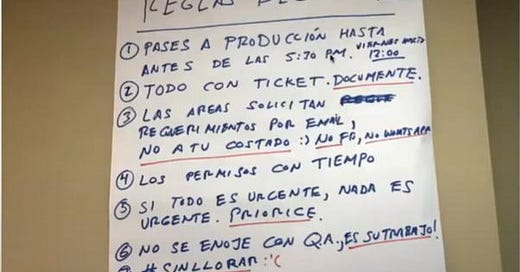 REGLAS
① PASES A PRODUCCIÓN HASTA
ANTES DE LAS 5:30 PM. VIERNES HASTA
12:00
② TODO CON TICKET. DOCUMENTE.
③ LAS AREAS SOLICITAN
REQUERIMIENTOS POR EMAIL,
NO A TU COSTADO :) NO FB, NO WHATSAPP
④ LOS PERMISOS CON TIEMPO
⑤ SI TODO ES URGENTE, NADA ES
URGENTE. PRIORICE.
⑥ NO SE ENOJE CON Q.A., ¡ES SU TRABAJO!
#SINLLORAR :'(